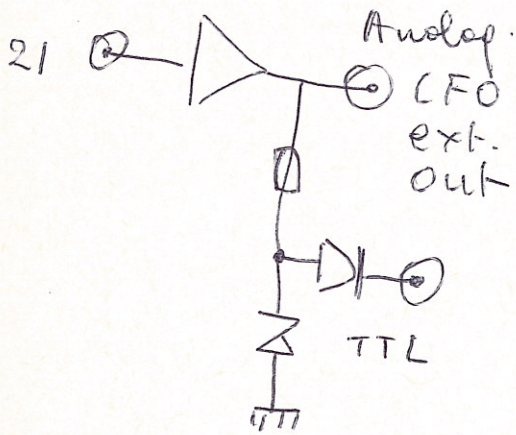 21
Analog.
CFO
ext.
out
TTL